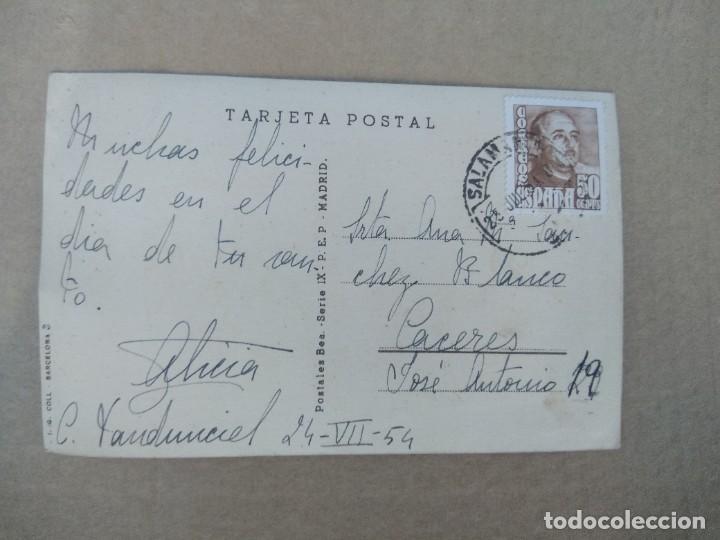 TARJETA POSTAL
Muchas felici-
dades en el
dia de tu san
to.
Alicia
C. 24-VII-54
Postales Bea. - Serie IX - P. E. P - MADRID.
I. G. COLL - BARCELONA
CORREOS
ESPAÑA
50
CENTS
SALAM
Srta Ana San-
chez Blanco
Caceres
José Antonio 19
todocoleccion
todocoleccion.net